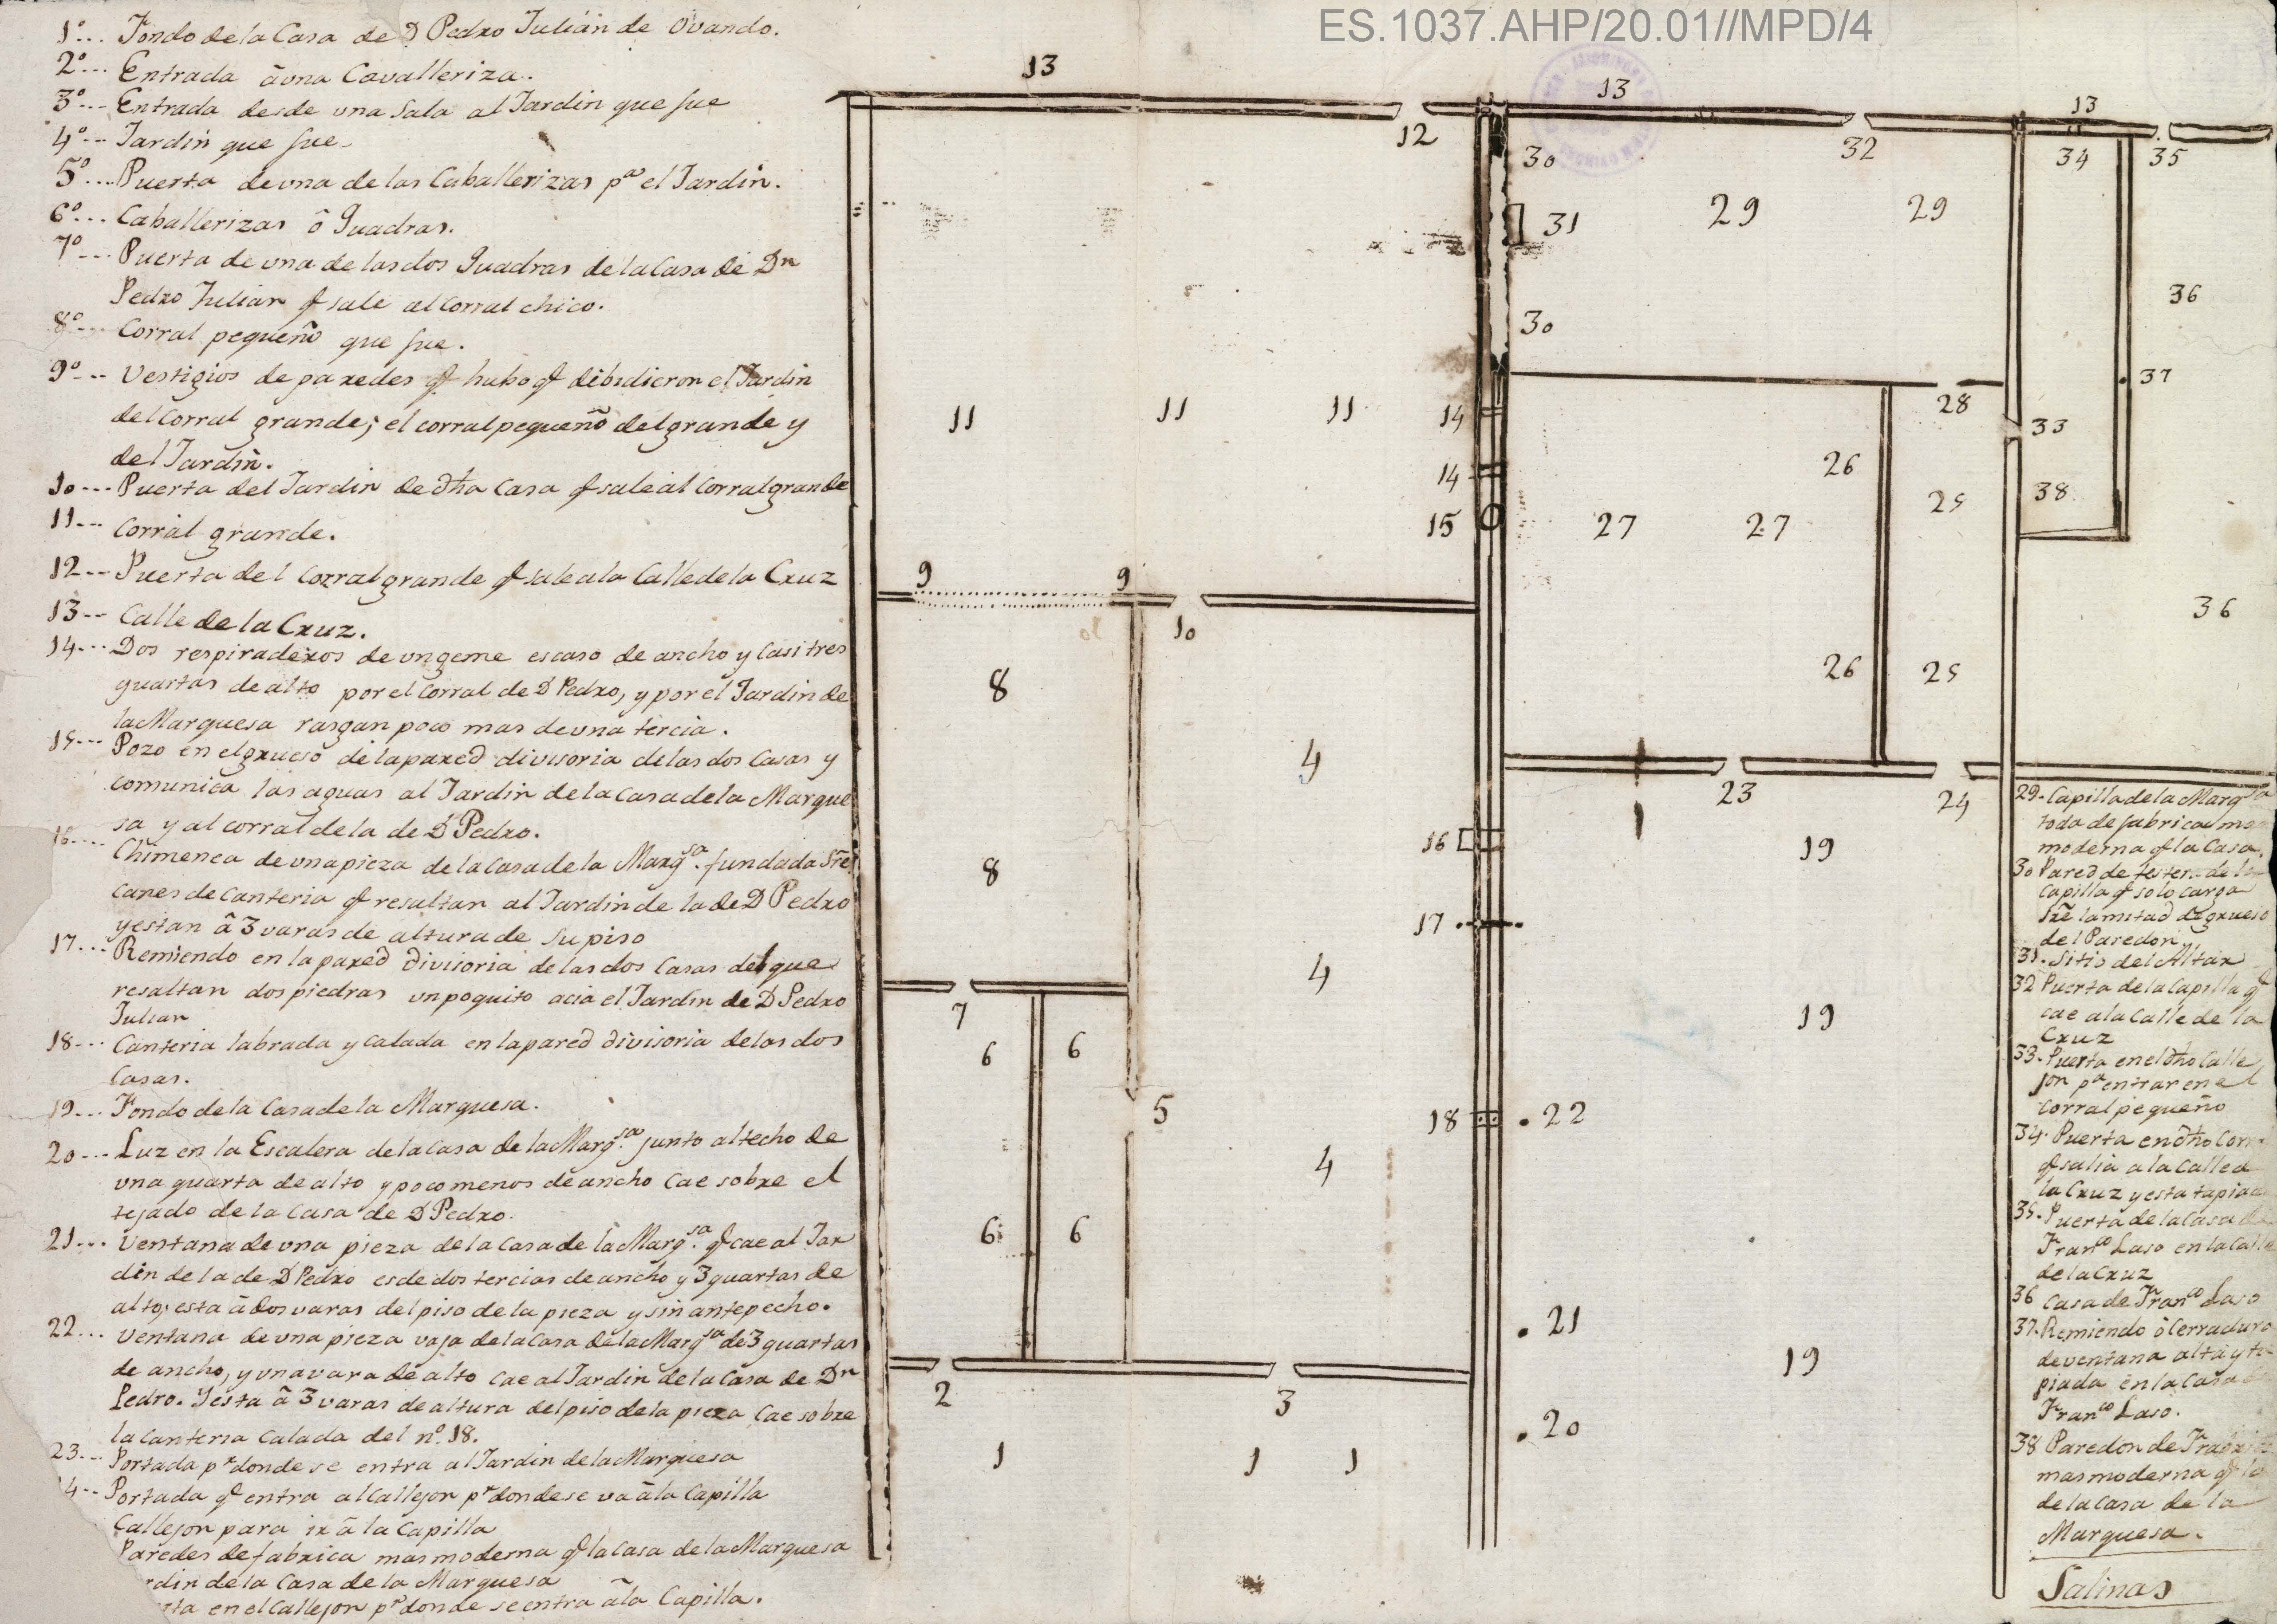 ES.1037.AHP/20.01//MPD/4
1º... Fondo de la Casa de D Pedro Julián de Ovando.
2º... Entrada â una Cavalleriza.
3º... Entrada desde una Sala al Jardin que fue
4º... Jardin que fue
5º... Puerta de una de las Caballerizas pª el Jardin.
6º... Caballerizas ô Quadras.
7º... Puerta de una de las dos Quadras de la Casa de Dn
Pedro Julian q sale al Corral chico.
8º... Corral pequeño que fue.
9º... Vestigios de paredes q hubo q dibidieron el Jardin
del Corral grande; el corral pequeño del grande y
del Jardin.
10... Puerta del Jardin de dha Casa q sale al Corral grande
11... Corral grande.
12... Puerta del Corral grande q sale a la Calle de la Cruz
13... Calle de la Cruz.
14... Dos respiraderos de un geme escaso de ancho y casi tres
quartas de alto por el Corral de D Pedro, y por el Jardin de
la Marquesa rasgan poco mas de una tercia.
15... Pozo en el grueso de la pared divisoria de las dos Casas y
comunica las aguas al Jardin de la Casa de la Marque
sa y al corral de la de D Pedro.
16... Chimenea de una pieza de la Casa de la Marqsa. fundada sre
canes de Canteria q resaltan al Jardin de la de D Pedro
y estan â 3 varas de altura de su piso
17... Remiendo en la pared divisoria de las dos Casas del que
resaltan dos piedras un poquito acia el Jardin de D Pedro
Julian
18... Canteria labrada y calada en la pared divisoria de las dos
Casas.
19... Fondo de la Casa de la Marquesa.
20... Luz en la Escalera de la Casa de la Marqsa. junto al techo de
una quarta de alto y poco menos de ancho cae sobre el
tejado de la Casa de D Pedro.
21... Ventana de una pieza de la Casa de la Marqsa. q cae al Jar
din de la de D Pedro es de dos tercias de ancho y 3 quartas de
alto, esta â dos varas del piso de la pieza y sin antepecho.
22... Ventana de una pieza vaja de la Casa de la Marqsa de 3 quartas
de ancho, y una vara de alto cae al Jardin de la Casa de Dn
Pedro. Y esta â 3 varas de altura del piso de la pieza cae sobre
la canteria calada del nº 18.
23... Portada pr donde se entra al Jardin de la Marquesa
4... Portada q entra al Callejon pr donde se va â la Capilla
Callejon para ir â la Capilla
Paredes de fabrica mas moderna q la casa de la Marquesa
rdin de la Casa de la Marquesa
rta en el Callejon pr donde se entra â la Capilla.
13
13
13
12
30
32
34
35
31
29
29
36
30
37
28
33
11
11
11
14
26
14
38
25
15
27
27
9
9
36
10
8
26
25
4
23
24
16
19
8
17
4
7
19
6
6
5
18
22
4
6
6
21
19
2
3
20
1
1
1
29. Capilla de la Marqsa
toda de fabrica mas
moderna q la Casa.
30 Pared de tester de la
Capilla q solo carga
sre la mitad del grueso
del Paredon
31. Sitio del Altar
32 Puerta de la Capilla q
cae a la Calle de la
Cruz
33. Puerta en el dho Calle
jon pª entrar en el
corral pequeño
34. Puerta en dho Corr
q salia a la Calle d
la Cruz y esta tapiad
35. Puerta de la Casa de
Franco Laso en la Calle
de la Cruz
36 Casa de Franco Laso
37. Remiendo ô Cerradura
de ventana alta y ta
piada en la Casa de
Franco Laso.
38 Paredon de Frabrica
mas moderna q la
de la Casa de la
Marquesa.
Salinas